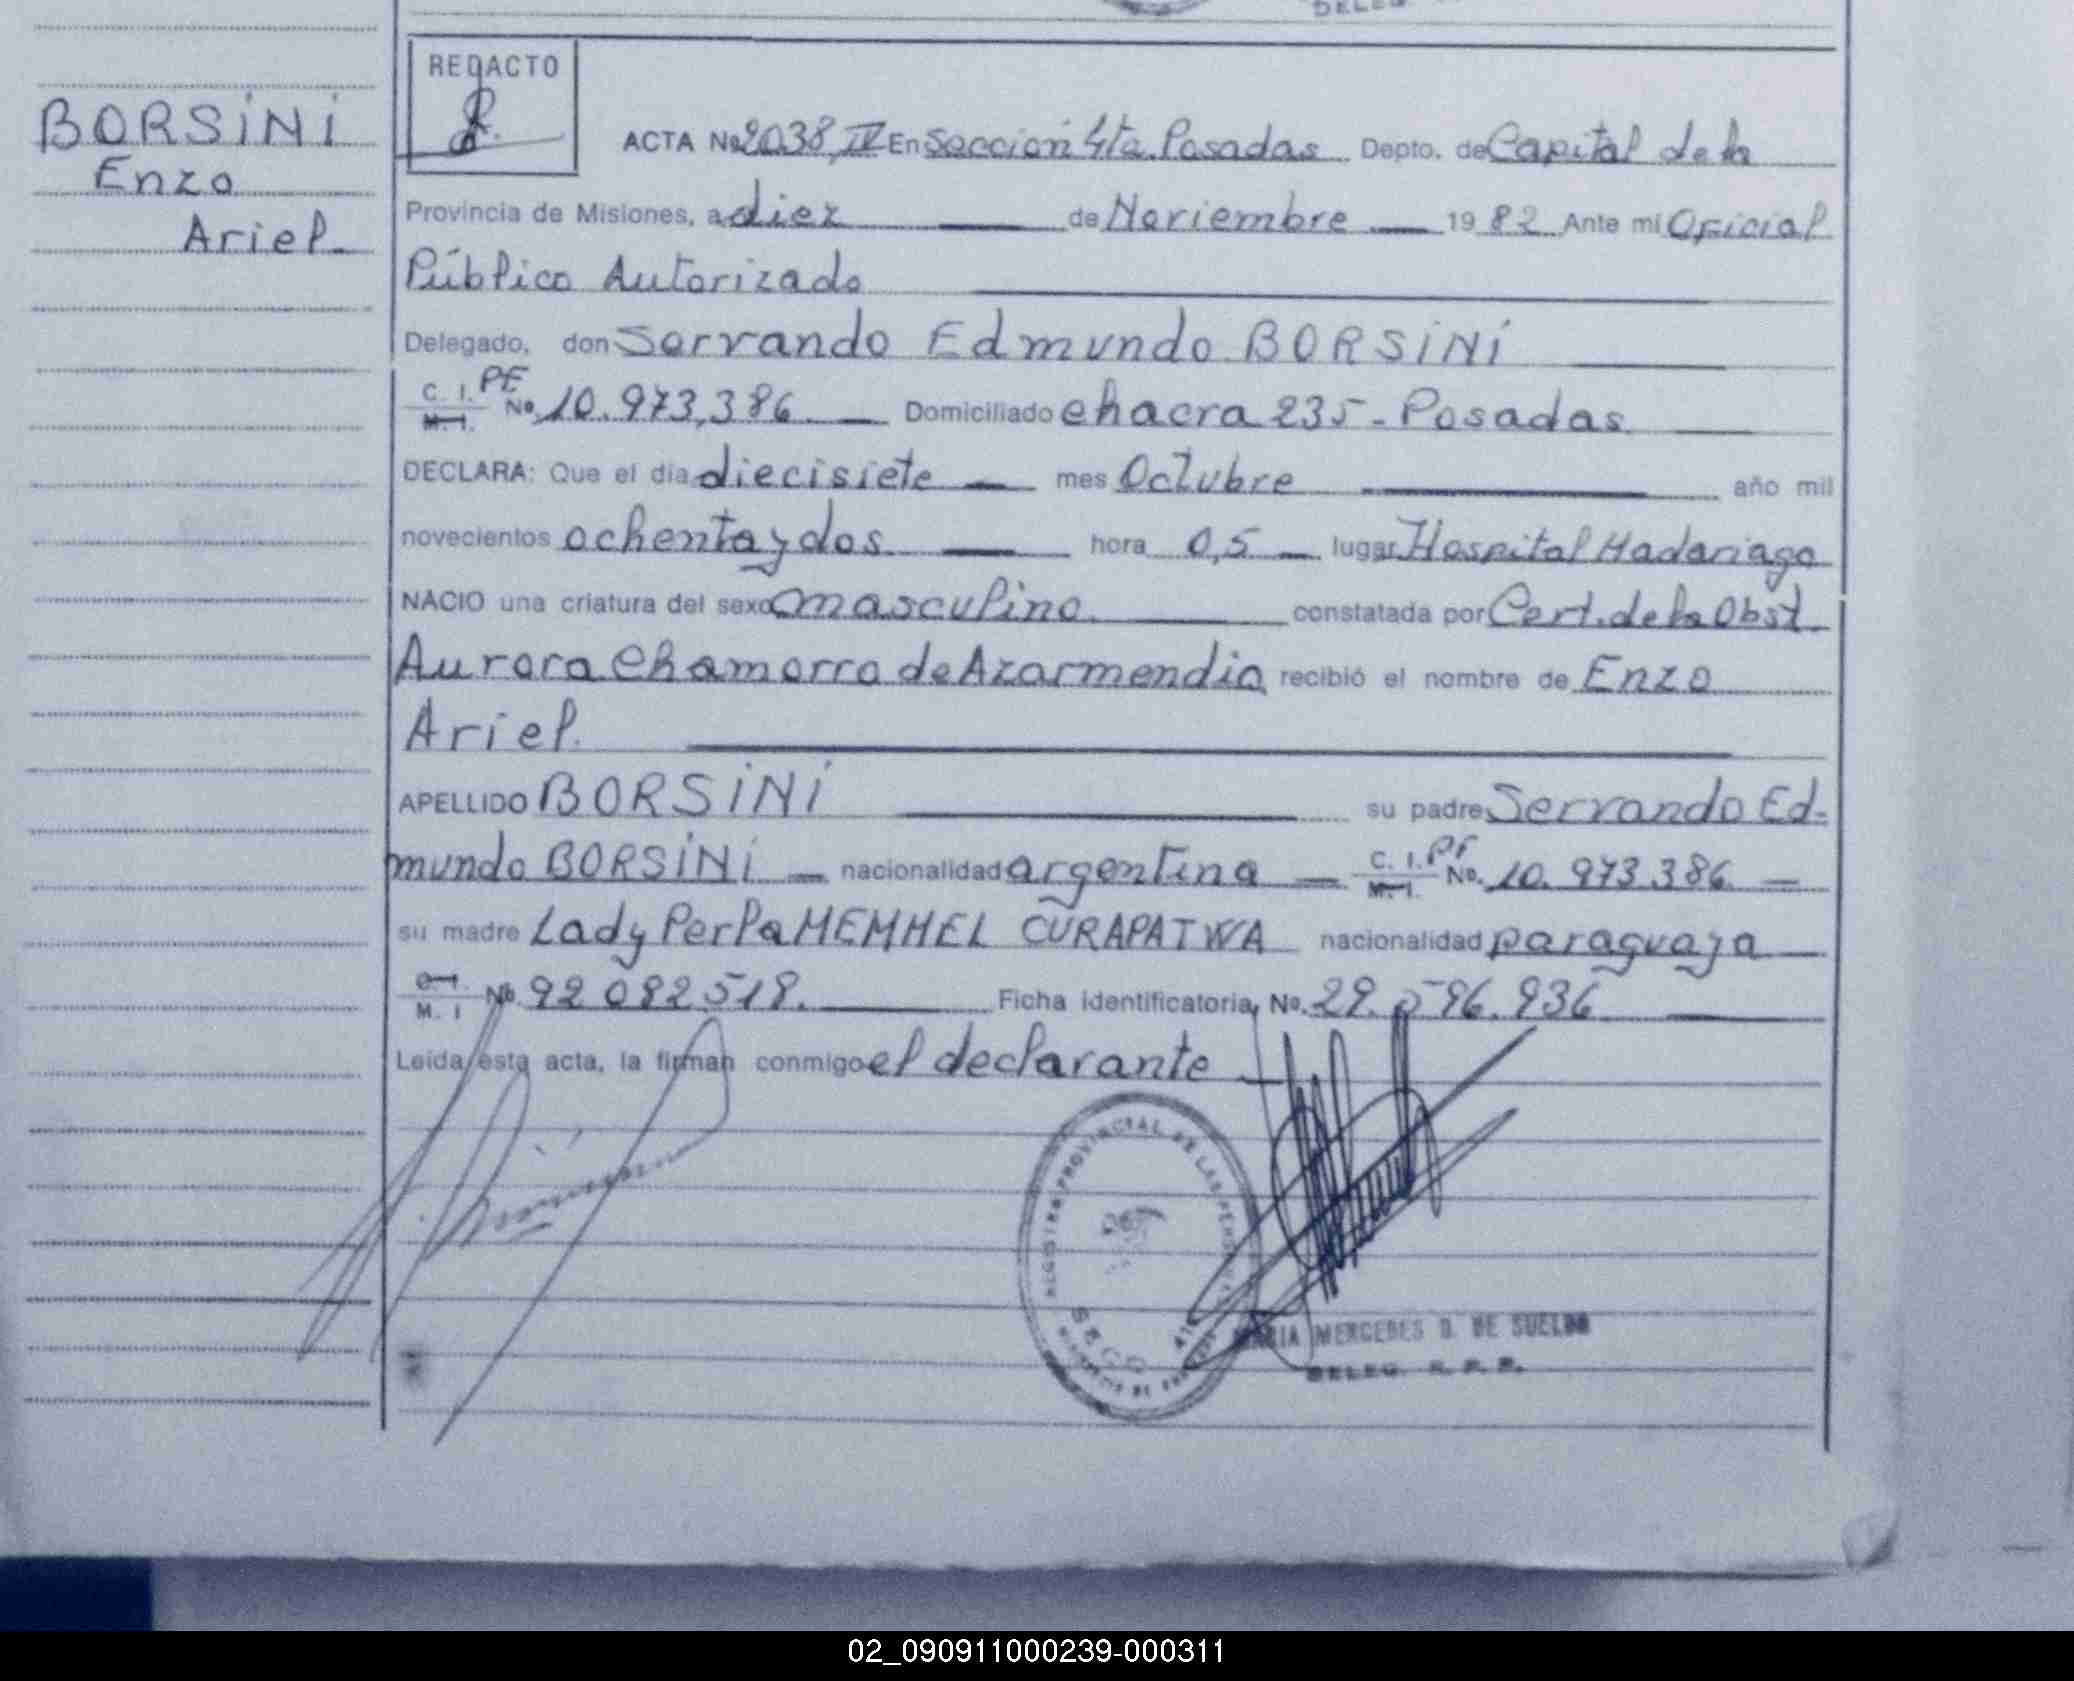 DELEG
REDACTO
BORSINI
Enzo
Ariel
ACTA No 2038, IV En Sección 4ta. Posadas Depto. de Capital de la
Provincia de Misiones, a diez de Noviembre 1982 Ante mi Oficial
Público Autorizado
Delegado, don Servando Edmundo BORSINI
C. I. PF
M. I. No. 10.973,386 Domiciliado chacra 235 - Posadas
DECLARA: Que el día diecisiete mes Octubre año mil
novecientos ochenta y dos hora 0,5 lugar Hospital Madariaga
NACIO una criatura del sexo masculino constatada por Cert. de la Obst.
Aurora Chamorro de Azarmendia recibió el nombre de Enzo
Ariel.
APELLIDO BORSINI su padre Servando Ed-
mundo BORSINI nacionalidad argentina C. I. PF M. I. No. 10.973.386
su madre Lady Perla MEMMEL CURAPATWA nacionalidad paraguaya
M. I No 92 082 518. Ficha identificatoria, No. 29.596.936
Leída esta acta, la firman conmigo el declarante
PROVINCIAL DE LAS
MARIA MERCEDES D. DE SUELDO
DELEG. R. P. P.
02_090911000239-000311